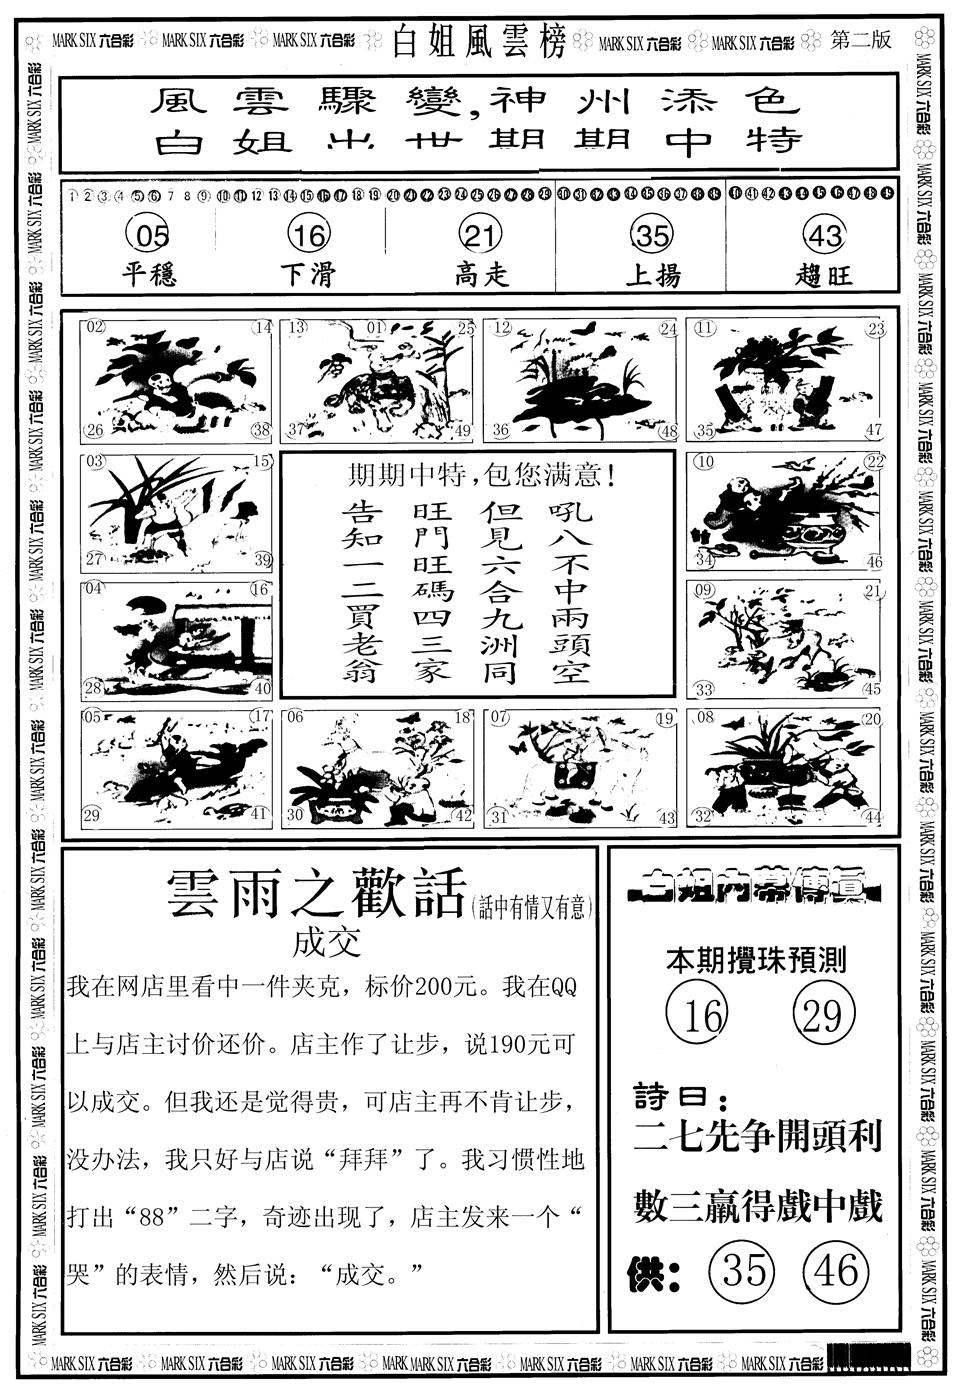 MARK SIX 六合彩 MARK SIX 六合彩 MARK SIX 六合彩 白姐風雲榜 MARK SIX 六合彩 MARK SIX 六合彩 第二版
風雲驟變,神州添色
白姐出世期期中特
1 2 3 4 5 6 7 8 9 10 11 12 13 14 15 16 17 18 19 20 21 22 23 24 25 26 27 28 29 30 31 32 33 34 35 36 37 38 39 40 41 42 43 44 45 46 47 48 49
05 16 21 35 43
平穩 下滑 高走 上揚 趨旺
02 14 13 01 25 12 24 11 23
26 38 37 49 36 48 35 47
03 15
27 39
04 16
28 40
期期中特,包您满意!
吼八不中兩頭空
但見六合九洲同
旺門旺碼四三家
告知一二買老翁
10 22
34 46
09 21
33 45
05 17 06 18 07 19 08 20
29 41 30 42 31 43 32 44
雲雨之歡話(話中有情又有意)
成交
我在网店里看中一件夹克，标价200元。我在QQ
上与店主讨价还价。店主作了让步，说190元可
以成交。但我还是觉得贵，可店主再不肯让步，
没办法，我只好与店说“拜拜”了。我习惯性地
打出“88”二字，奇迹出现了，店主发来一个“
哭”的表情，然后说：“成交。”
白姐内幕傳真
本期攪珠預測
16 29
詩曰：
二七先争開頭利
數三贏得戲中戲
供：35 46
MARK SIX 六合彩 MARK SIX 六合彩 MARK SIX 六合彩 MARK MARK SIX 六合彩 MARK SIX 六合彩 MARK SIX 六合彩 MARK SIX 六合彩